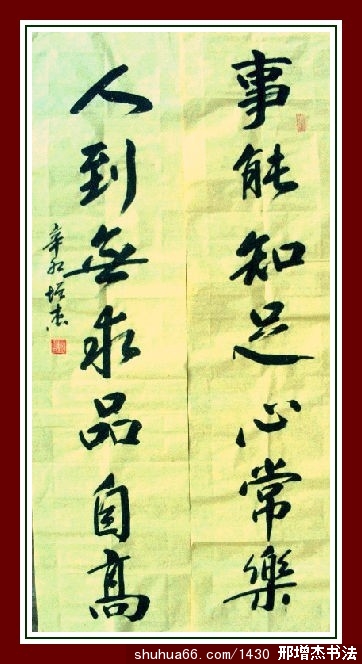 事能知足心常樂
人到無求品自高
辛卯增杰
shuhua66.com/1430 邢增杰书法